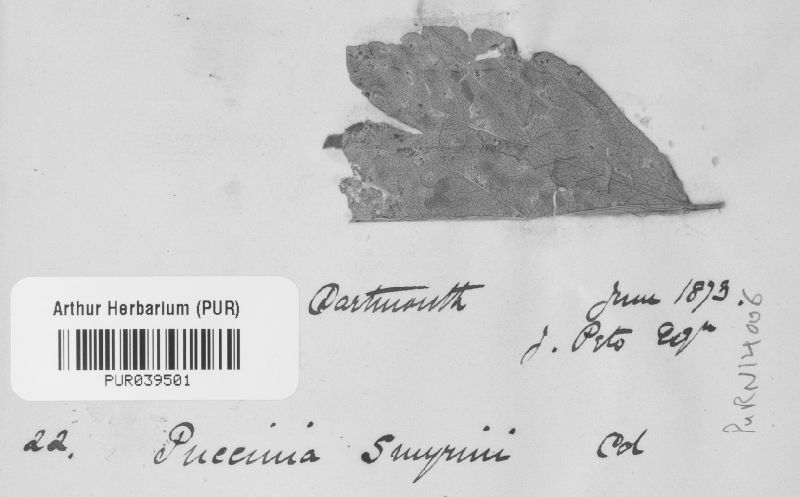 Arthur Herbarium (PUR)
PUR039501
Dartmouth June 1893.
J. Peto Esqr
PURN14006
22. Puccinia Smyrnii Cd